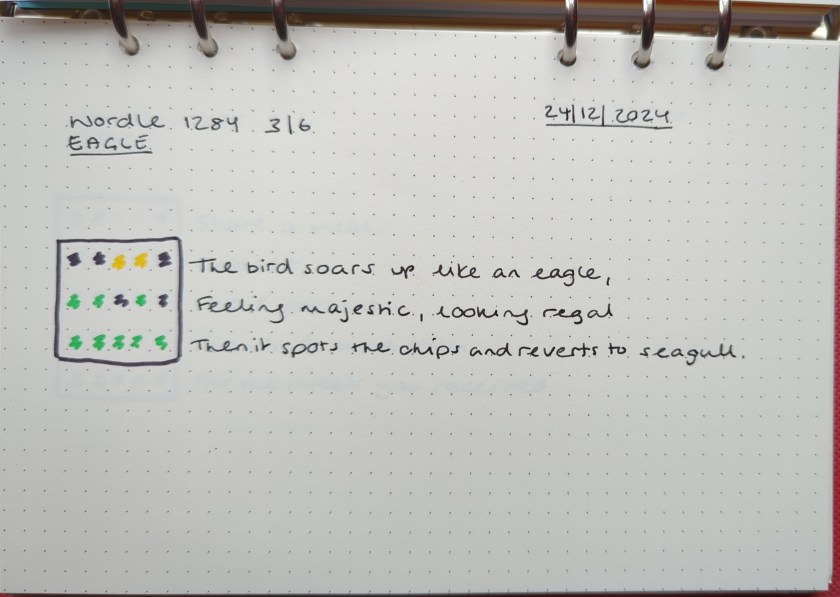 Wordle 1284 3/6
24/12/2024
EAGLE
The bird soars up like an eagle,
Feeling majestic, looking regal
Then it spots the chips and reverts to seagull.